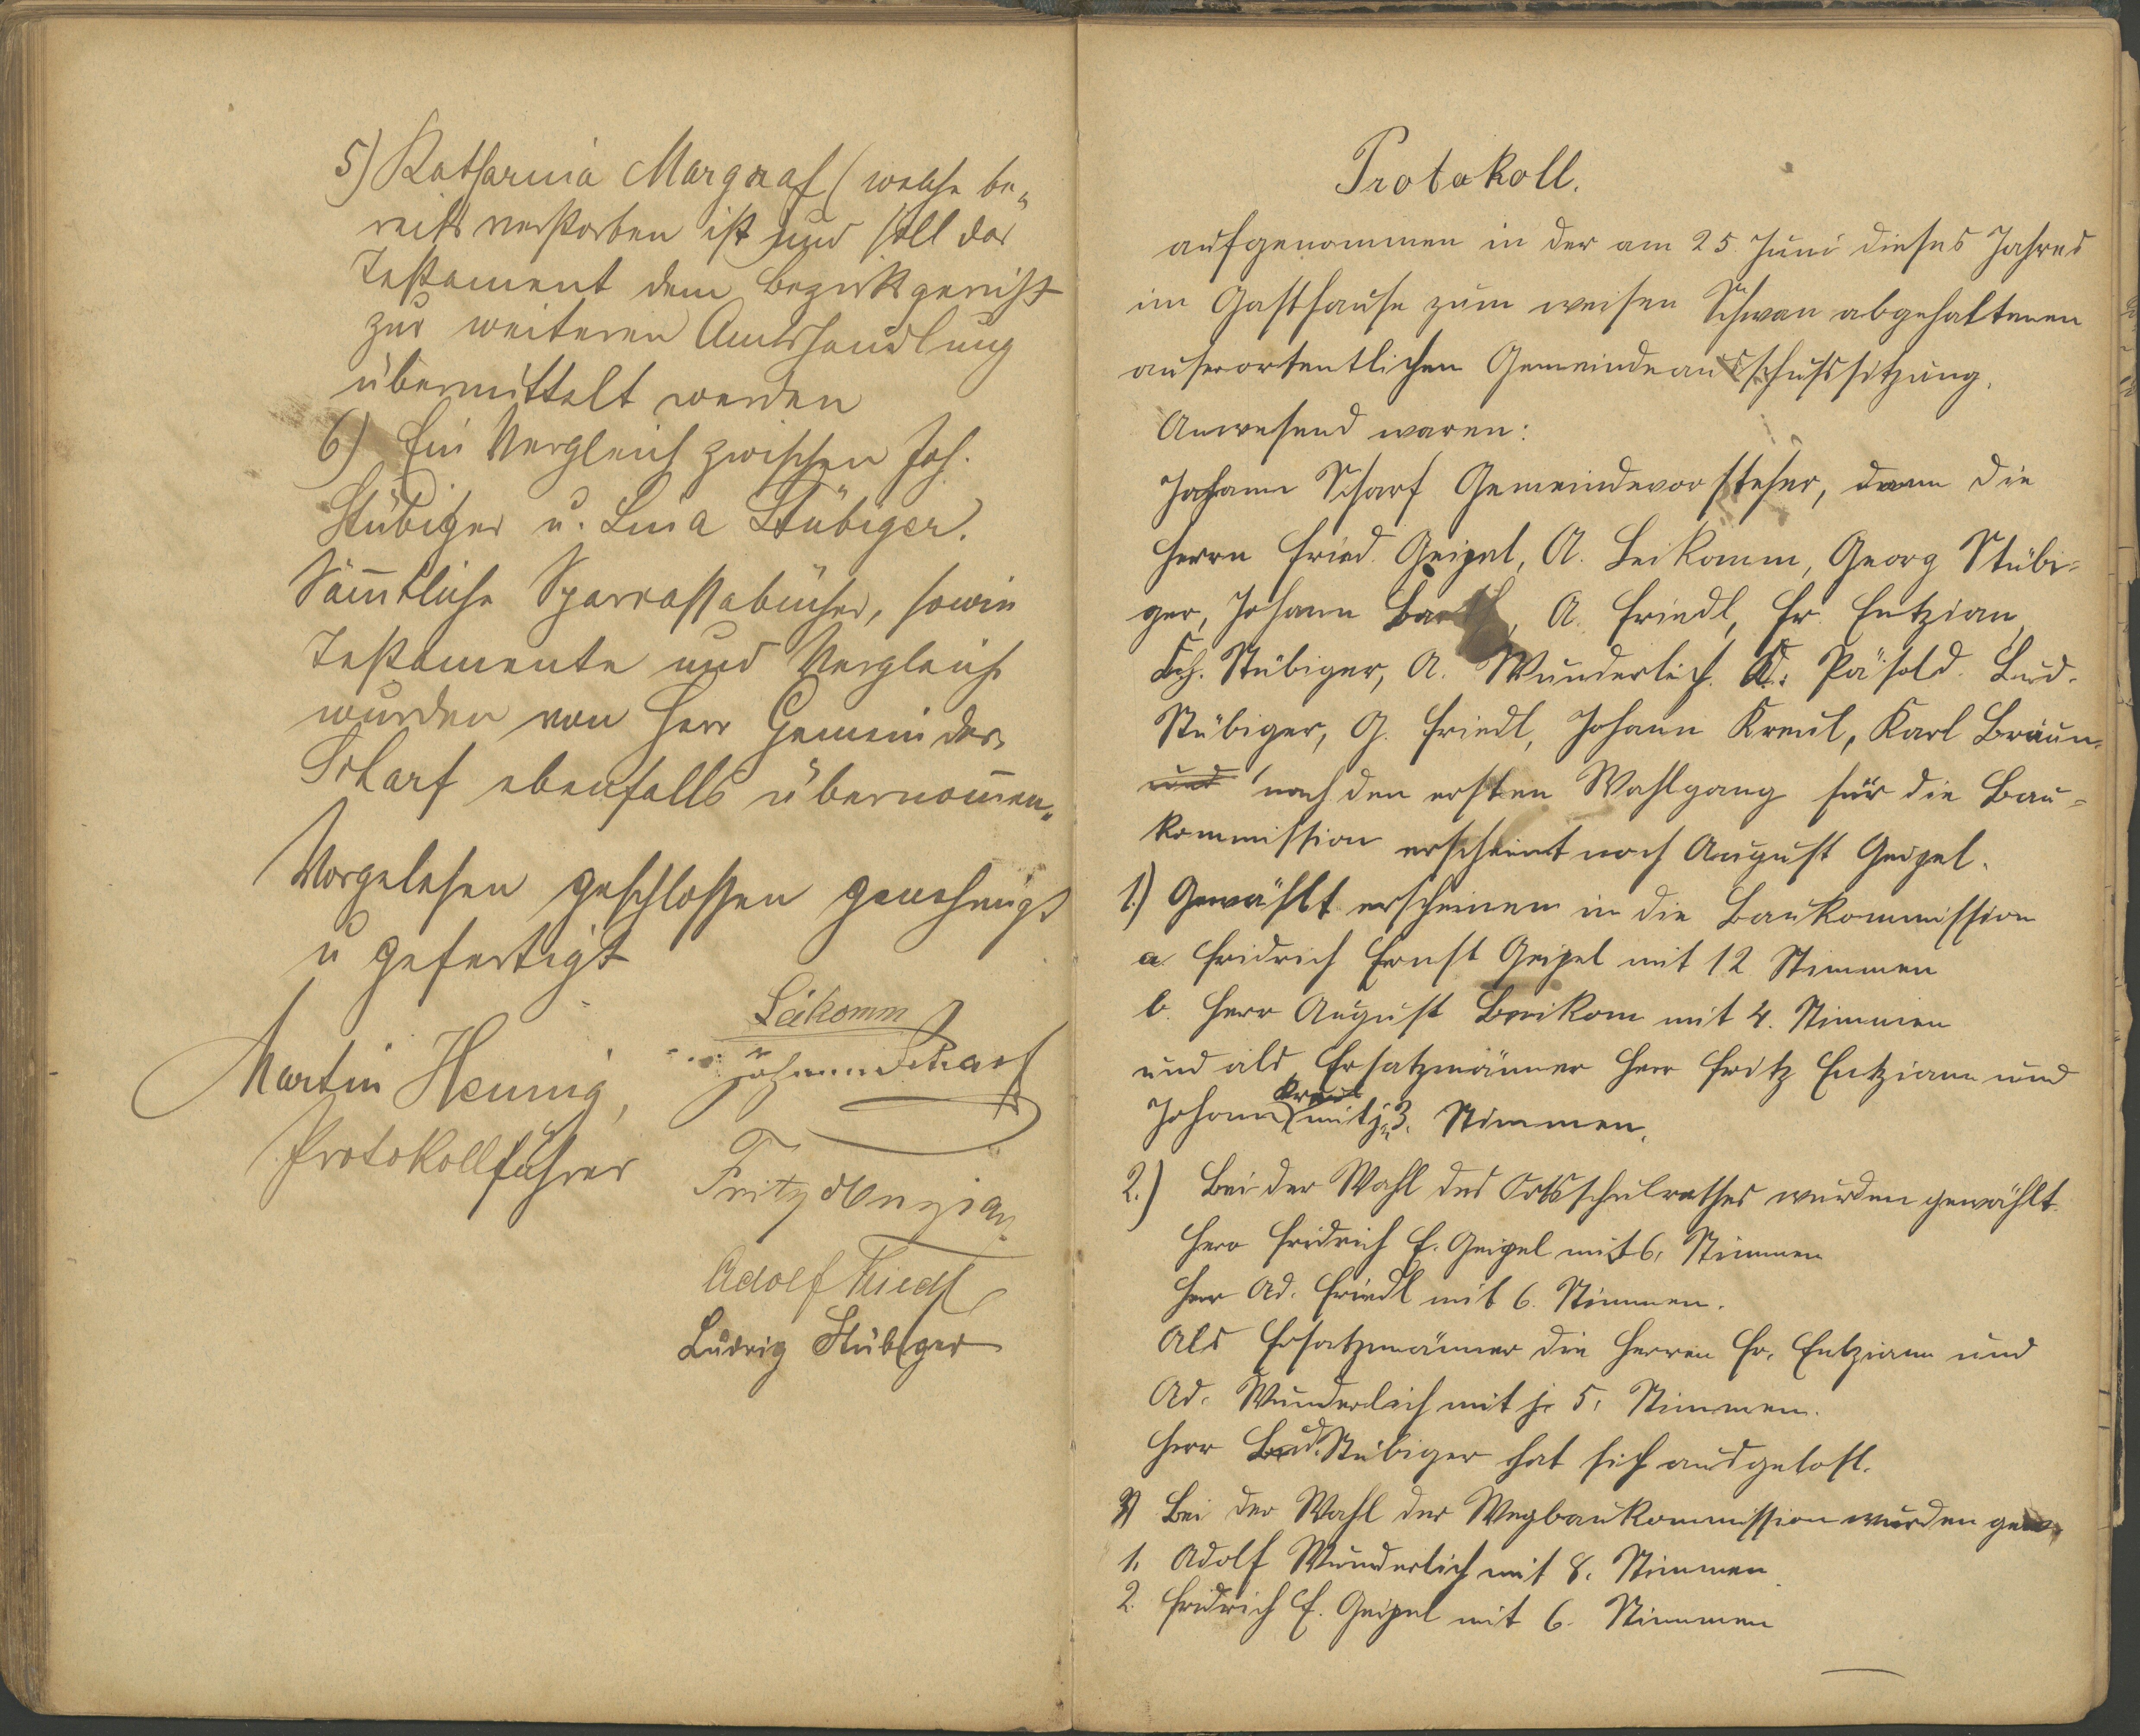 5) Katharina Margraf (welche be„
reits verstorben ist und soll das
Testament dem Bezirksgericht
zur weiteren Amtshandlung
übermittelt werden
6) Ein Vergleich zwischen Joh.
Stübiger u. Lina Stübiger.
Sämtliche Sparcassabücher, sowie
Testamente und Vergleich
wurden von Herr Gemeinder
Scharf ebenfalls übernommen„
Vorgelesen geschlossen genehmigt
u gefertigt
Martin Hennig,
Protokollführer
Leikomm
Johann Scharf
Fritz Enzian
Adolf Friedl
Ludwig Stübiger
Protokoll.
aufgenommen in der am 25. Juni dieses Jahres
im Gasthause zum weisen Schwan abgehaltenen
auserortentlichen Gemeindeausschufssitzung.
Anwesend waren:
Johann Scharf Gemeindevorsteher, dann die
Herrn Fried. Geipel, A. Leikamm, Georg Stübi-
ger, Johann Barth, A. Friedl, Fr. Entzian,
Joh. Stübiger, A. Wunderlich. A. Päsold. Lud.
Stübiger, G. Friedl, Johann Kreul, Karl Braun-
und nach den ersten Wahlgang für die Bau-
kommission erscheint noch August Geipel.
1.) Gewählt erscheinen in die Baukommission
a. Fridrich Ernst Geipel mit 12 Stimmen
b. Herr August Leikom mit 4. Stimmen
und als Ersatzmänner Herr Fritz Entziann und
Johann Kreul mit j. 3. Stimmen.
2.) Bei der Wahl des Ortsschulrathes wurden gewählt.
Herr Fridrich E. Geipel mit 6. Stimmen
Herr Ad. Friedl mit 6. Stimmen.
Als Ersatzmänner die Herren Fr. Entziann und
Ad. Wunderlich mit je 5. Stimmen.
Herr Lud. Stübiger hat sich ausgelost.
3) Bei der Wahl der Wegbaukommission wurden gew.
1. Adolf Wunderlich mit 8. Stimmen
2. Fridrich E. Geipel mit 6. Stimmen